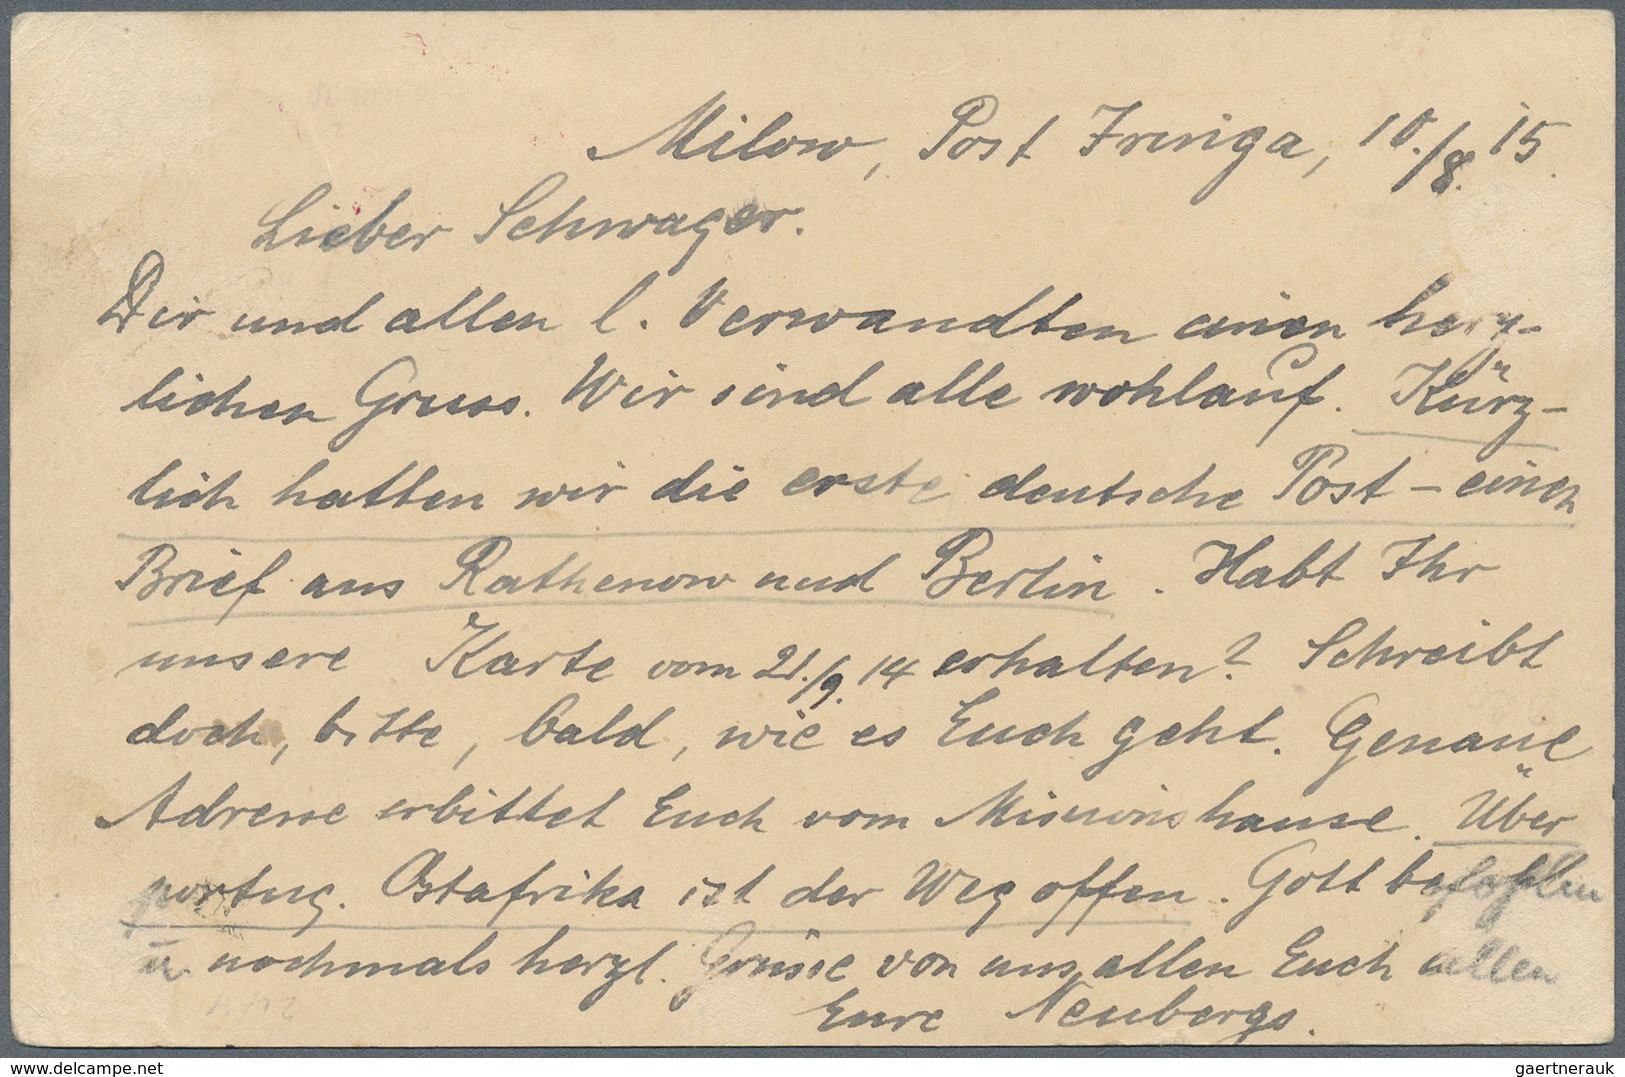 Milow, Post Iringa, 10./8. 15.
Lieber Schwager.
Dir und allen l. Verwandten einen herz-
lichen Gruss. Wir sind alle wohlauf. Kürz-
lich hatten wir die erste deutsche Post - einen
Brief aus Rathenow und Berlin. Habt Ihr
unsere Karte vom 21./9. 14 erhalten? Schreibt
doch, bitte, bald, wie es Euch geht. Genaue
Adresse erbittet Euch vom Missionshause. Über
portug. Ostafrika ist der Weg offen. Gott befohlen
u. nochmals herzl. Grüsse von uns allen Euch allen
Eure Neubergs.
www.delcampe.net
gaertnerauk